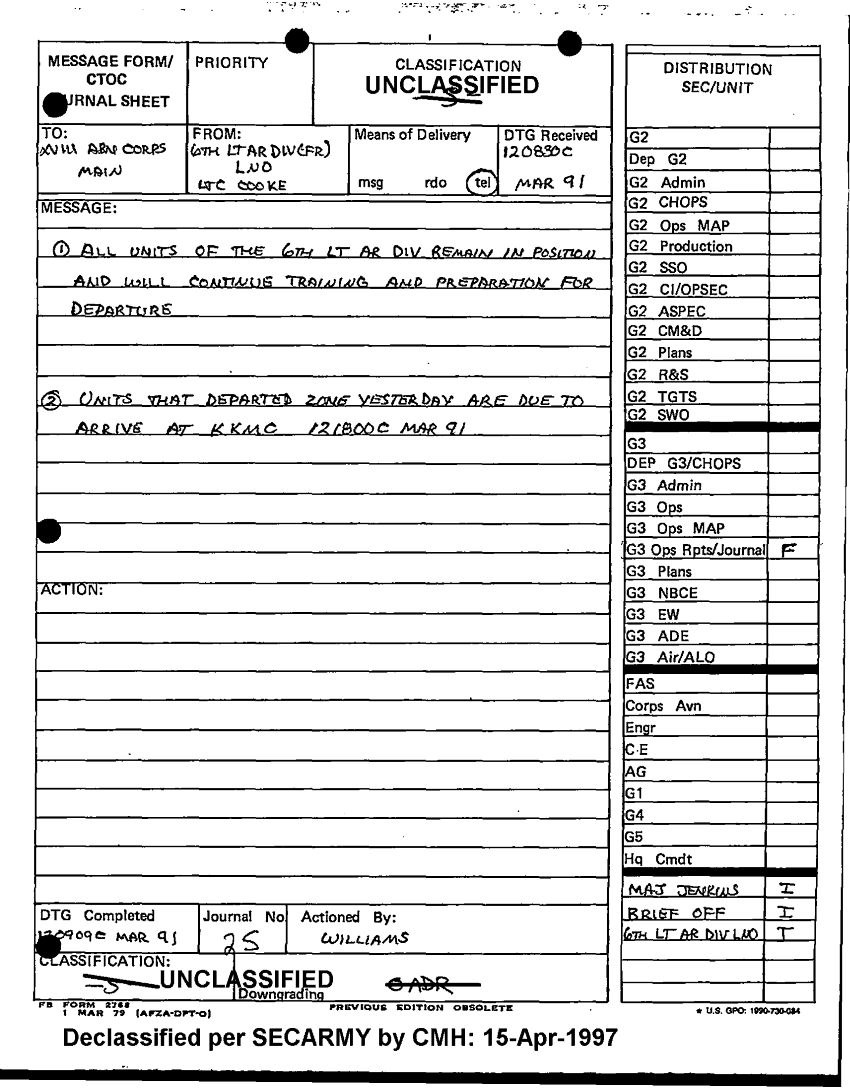 MESSAGE FORM/
CTOC
URNAL SHEET
PRIORITY
CLASSIFICATION
UNCLASSIFIED
TO:
XVIII ABN CORPS
MAIN
FROM:
6TH LT AR DIV (FR)
LNO
LTC COOKE
Means of Delivery
msg rdo tel
DTG Received
120830C
MAR 91
MESSAGE:
① ALL UNITS OF THE 6TH LT AR DIV REMAIN IN POSITION
AND WILL CONTINUE TRAINING AND PREPARATION FOR
DEPARTURE
② UNITS THAT DEPARTED ZONE YESTERDAY ARE DUE TO
ARRIVE AT KKMC 121800C MAR 91
ACTION:
DTG Completed
0909C MAR 91
Journal No
25
Actioned By:
WILLIAMS
CLASSIFICATION:
UNCLASSIFIED
OADR
Downgrading
FB FORM 2768
1 MAR 79 (AFZA-DPT-O)
PREVIOUS EDITION OBSOLETE
DISTRIBUTION
SEC/UNIT
G2
Dep G2
G2 Admin
G2 CHOPS
G2 Ops MAP
G2 Production
G2 SSO
G2 CI/OPSEC
G2 ASPEC
G2 CM&D
G2 Plans
G2 R&S
G2 TGTS
G2 SWO
G3
DEP G3/CHOPS
G3 Admin
G3 Ops
G3 Ops MAP
G3 Ops Rpts/Journal F
G3 Plans
G3 NBCE
G3 EW
G3 ADE
G3 Air/ALO
FAS
Corps Avn
Engr
C-E
AG
G1
G4
G5
Hq Cmdt
MAJ JENKINS I
BRIEF OFF I
6TH LT AR DIV LNO I
* U.S. GPO: 1990-730-084
Declassified per SECARMY by CMH: 15-Apr-1997